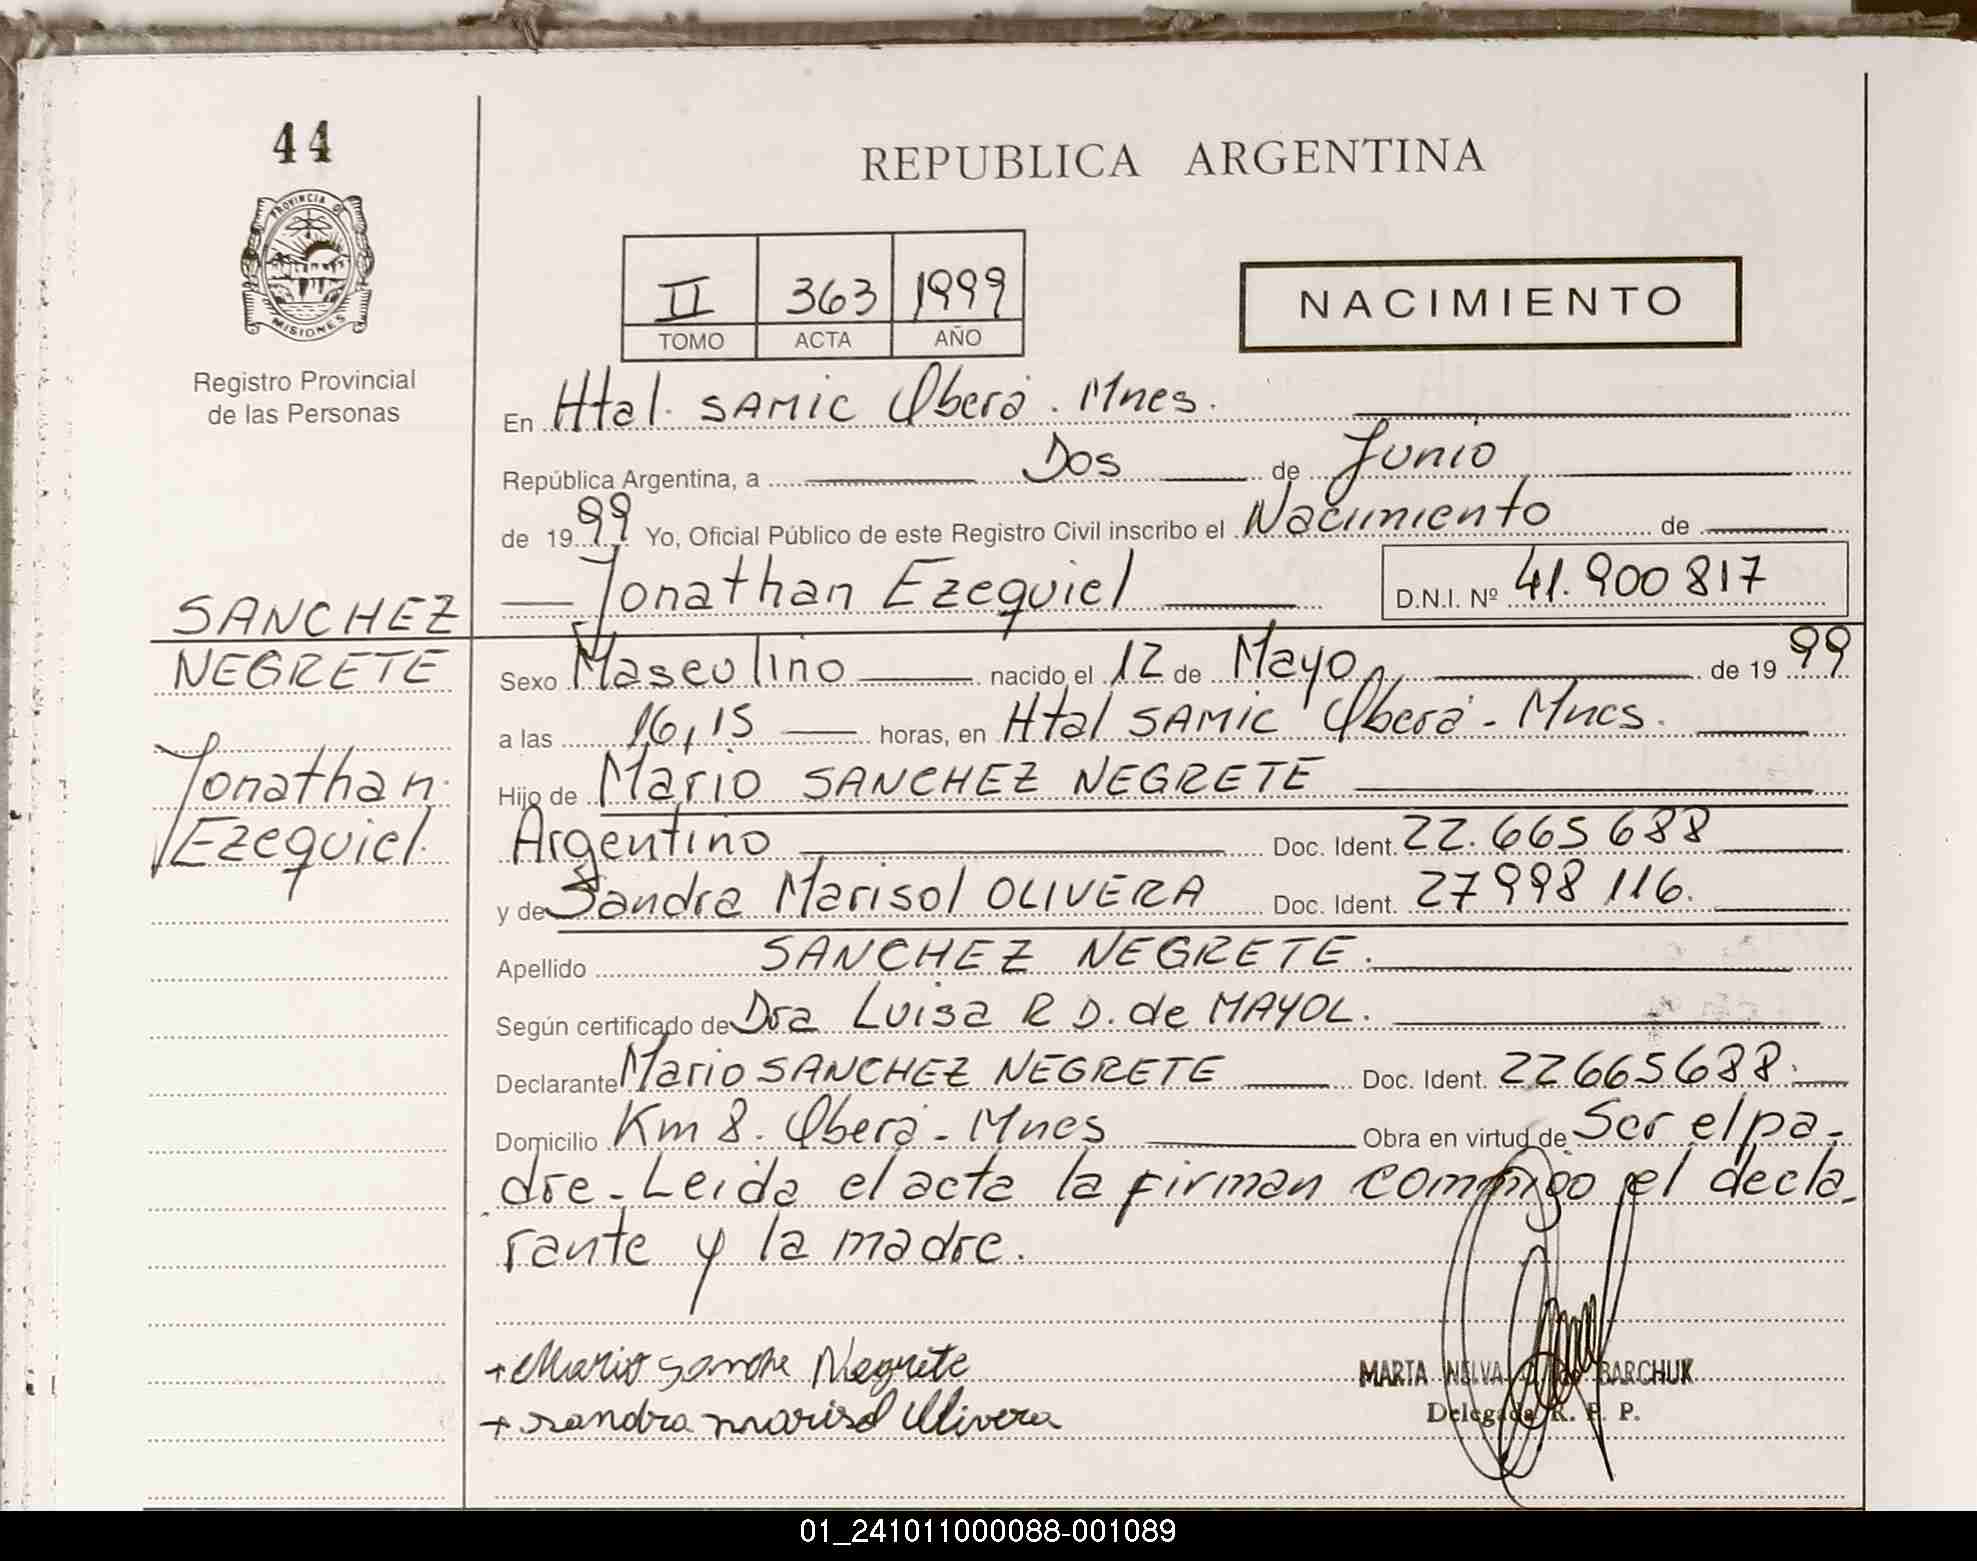 44
PROVINCIA DE
MISIONES
Registro Provincial
de las Personas
SANCHEZ
NEGRETE
Jonathan
Ezequiel.
REPUBLICA ARGENTINA
II 363 1999
TOMO ACTA AÑO
NACIMIENTO
En Htal. SAMIC Oberá. Mnes.
República Argentina, a Dos de Junio
de 1999 Yo, Oficial Público de este Registro Civil inscribo el Nacimiento de
Jonathan Ezequiel D.N.I. Nº 41.900817
Sexo Masculino nacido el 12 de Mayo de 1999
a las 16,15 horas, en Htal SAMIC Oberá - Mnes.
Hijo de Mario SANCHEZ NEGRETE
Argentino Doc. Ident. 22.665688
y de Sandra Marisol OLIVERA Doc. Ident. 27998116.
Apellido SANCHEZ NEGRETE.
Según certificado de Dra Luisa R D. de MAYOL.
Declarante Mario SANCHEZ NEGRETE Doc. Ident. 22665688.
Domicilio Km 8. Oberá - Mnes Obra en virtud de Ser el pa-
dre. Leida el acta la firman conmigo el decla-
rante y la madre.
+ Mario Sanche Negrete
+ Sandra marisol Olivera
MARTA NELVA BARCHUK
Delegada R. P. P.
01_241011000088-001089